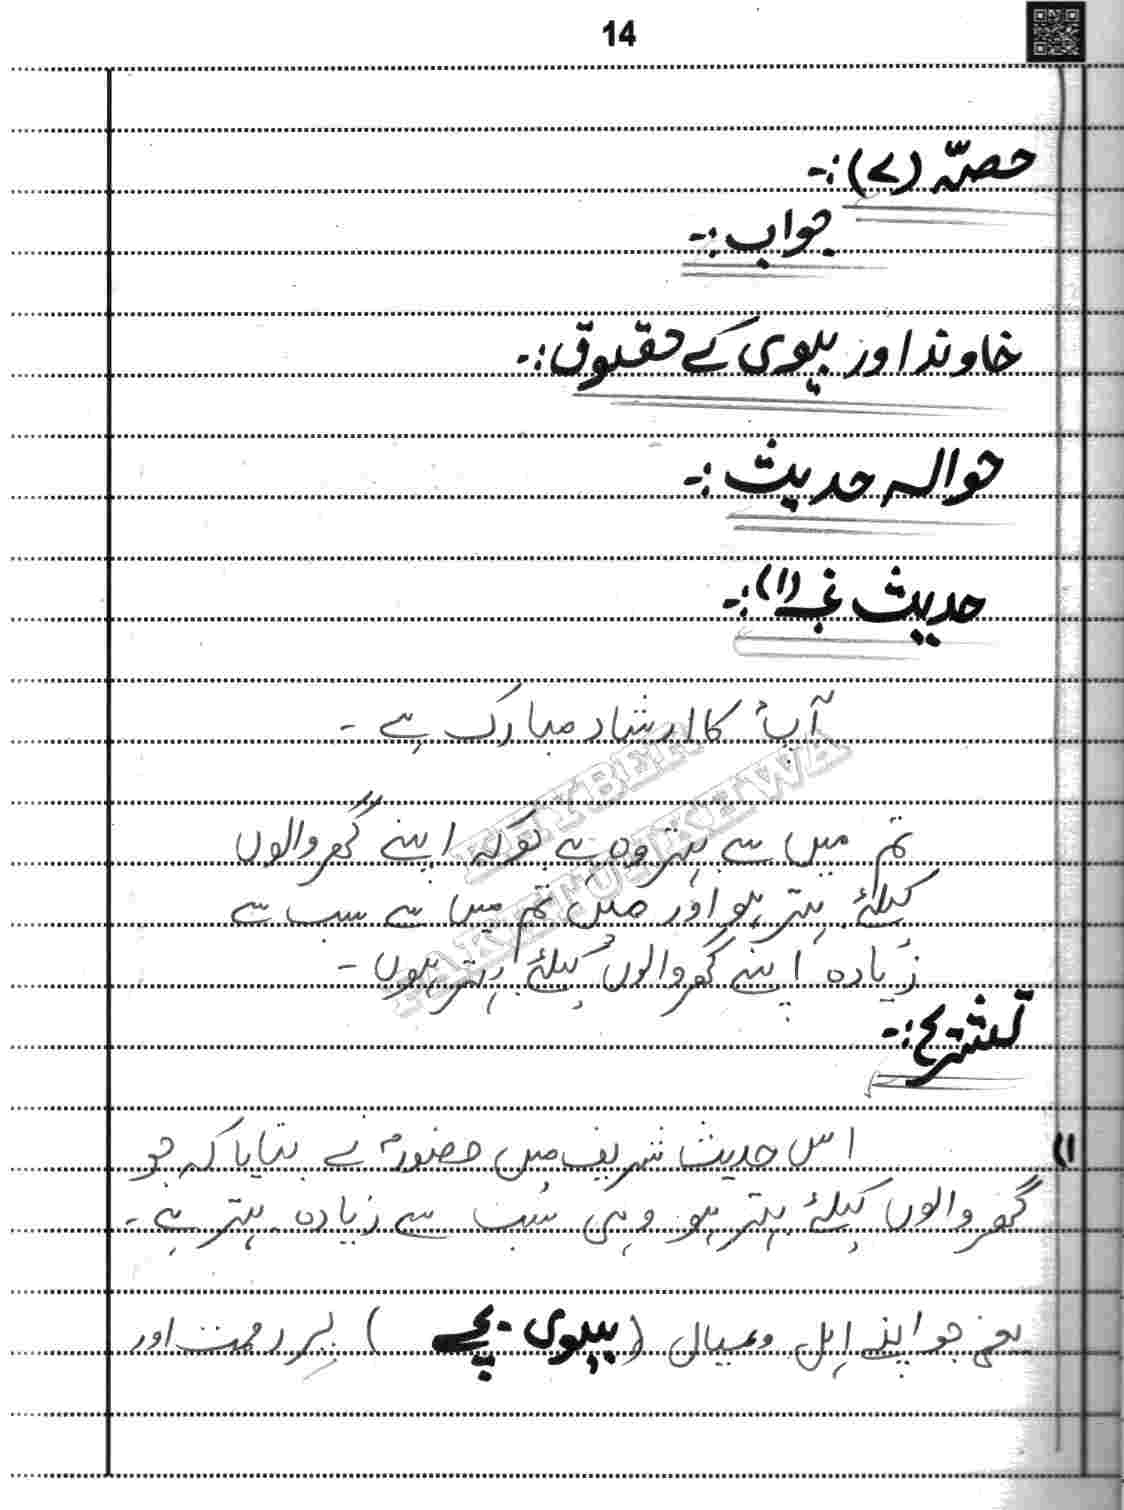 14
حصہ (ے) :-
جواب :-
خاوند اور بیوی کے حقوق :-
حوالہ حدیث :-
حدیث نمبر (۱) :-
آپؐ کا ارشاد مبارک ہے -
تم میں سے بہتر وہ ہے جو کہ اپنے گھر والوں
کیلئے بہتر ہو اور میں تم میں سے سب سے
زیادہ اپنے گھر والوں کیلئے بہتر ہوں -
تشریح :-
۱) اس حدیث شریف میں حضورؐ نے بتایا کہ جو
گھر والوں کیلئے بہتر ہو وہی سب سے زیادہ بہتر ہے -
یعنی جو اپنے اہل و عیال (بیوی - بچے) پر رحمت اور
KHYBER
PAKHTUNKHWA